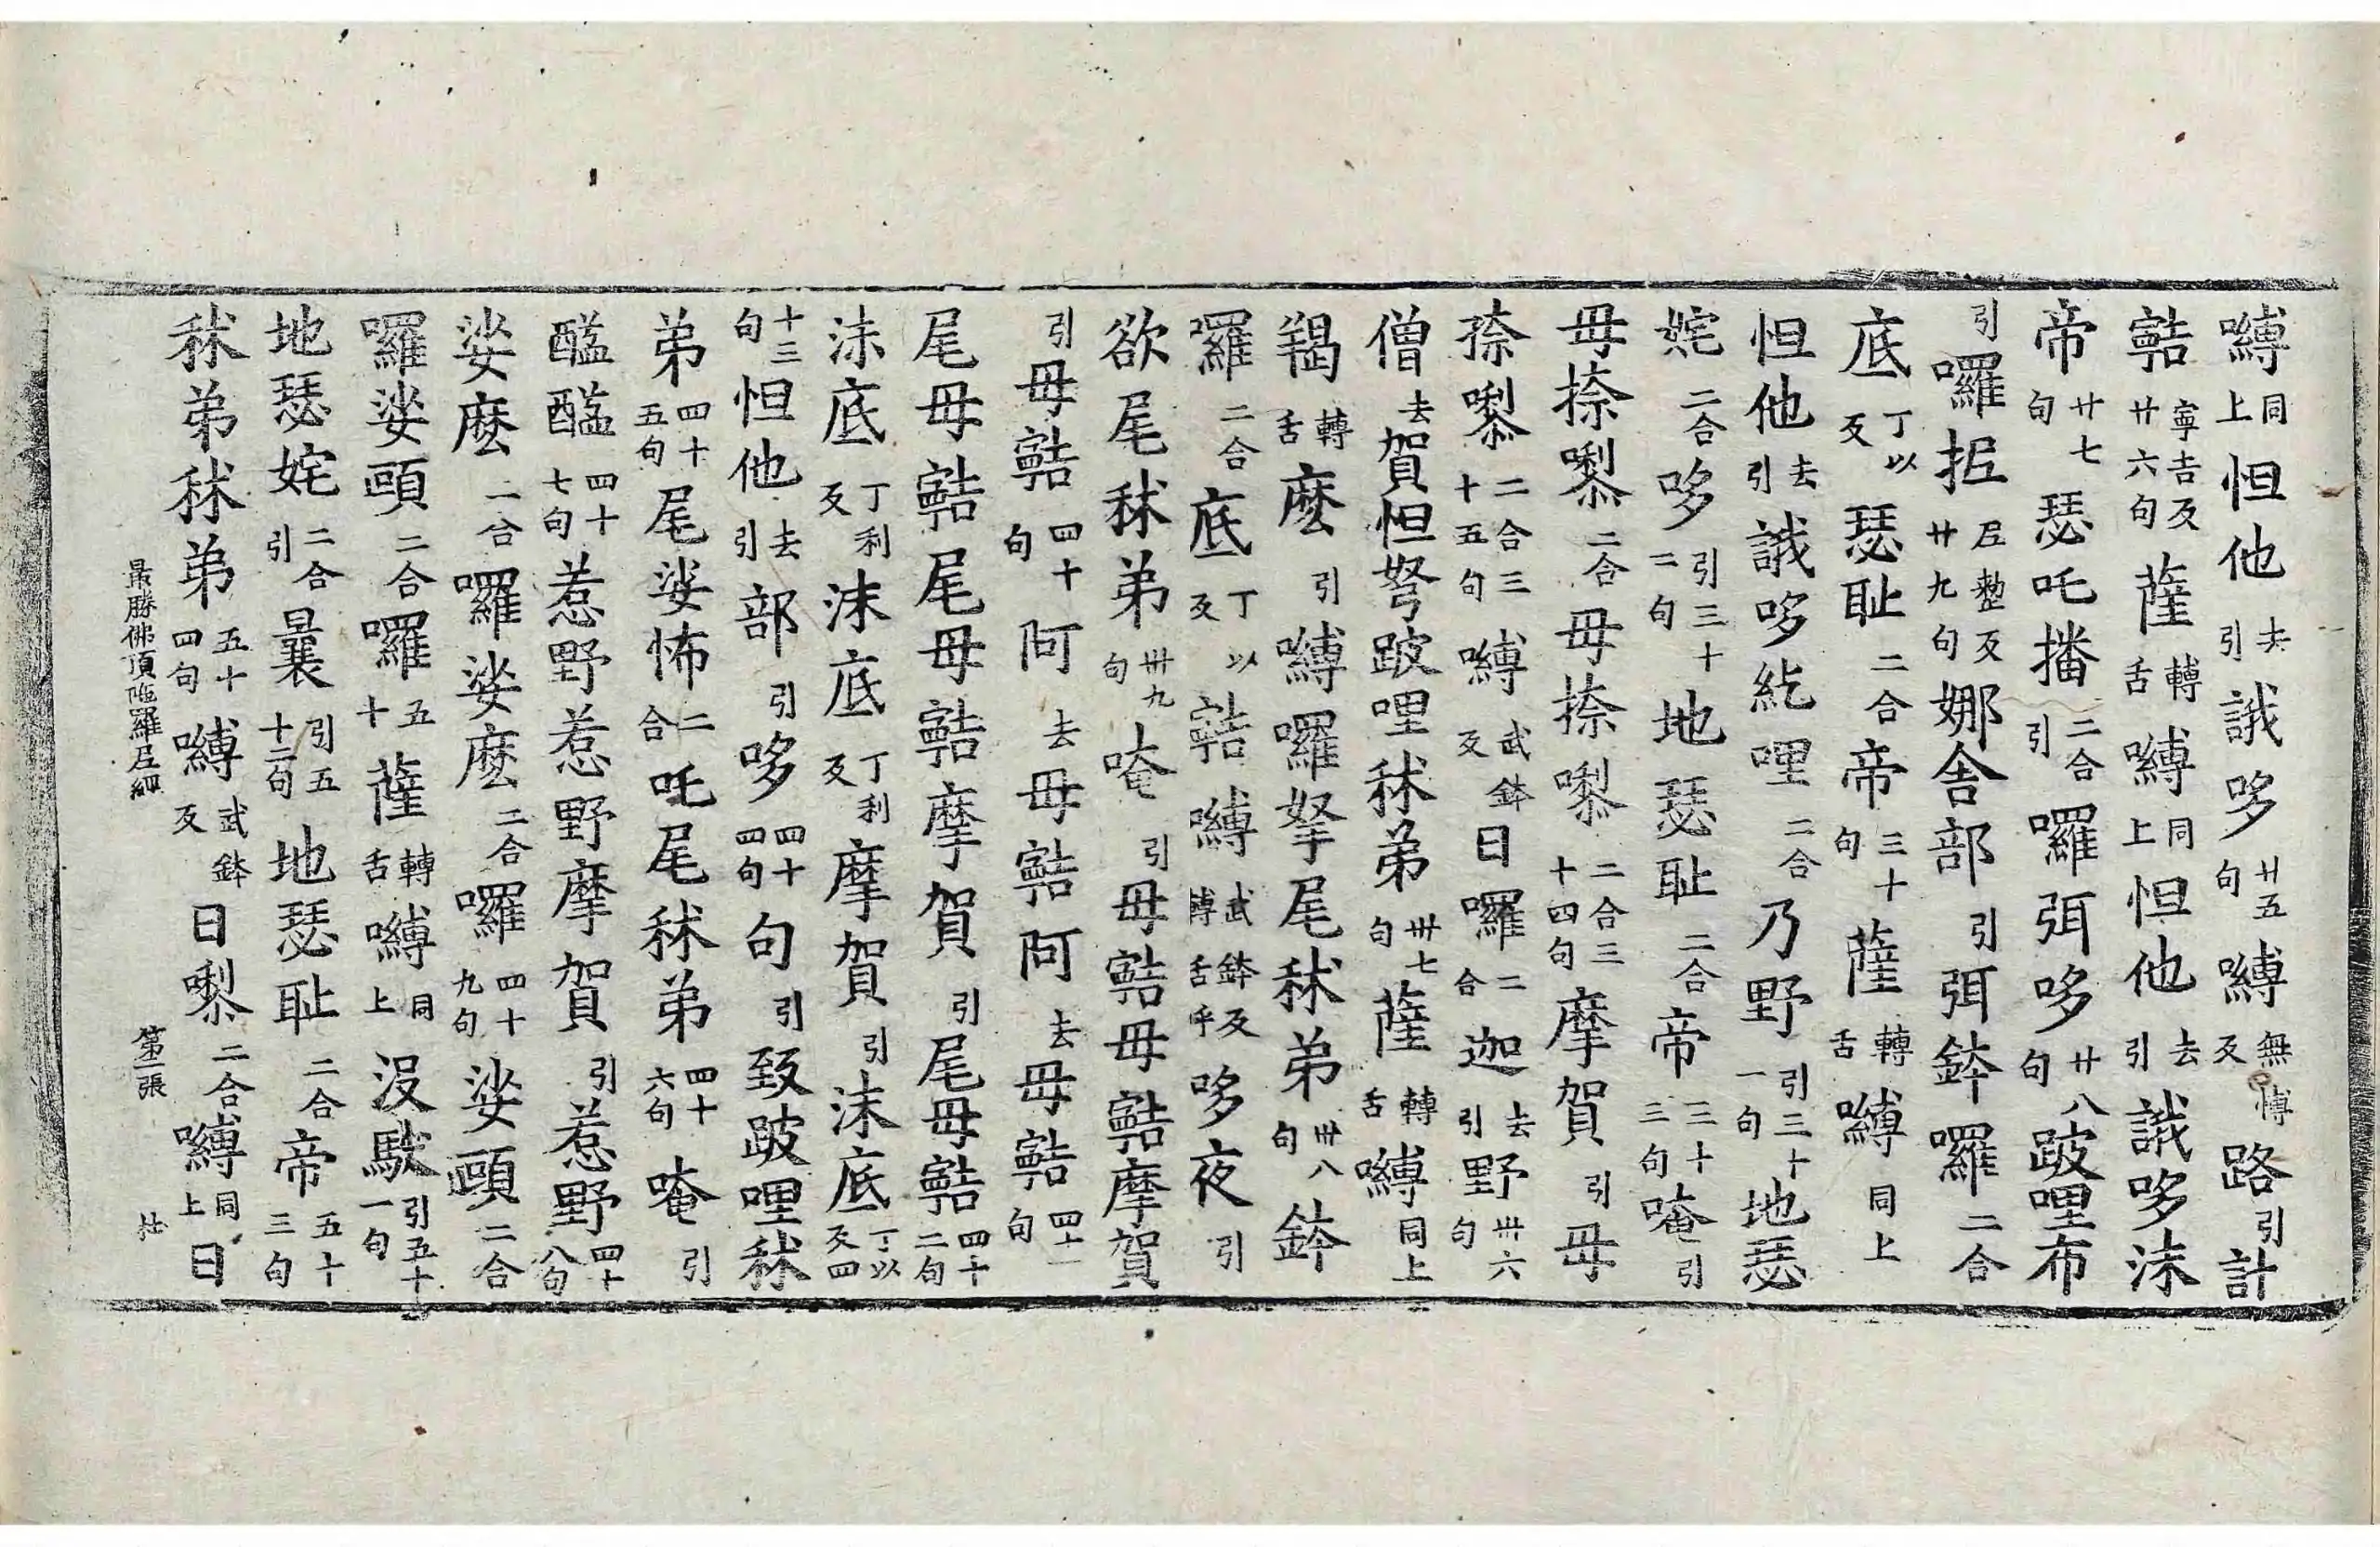 嚩同上怛他去引誐哆廿五句嚩無愽反路引計
𩕳寧吉反廿六句薩轉舌嚩同上怛他去引誐哆沬
帝廿七句瑟吒播二合引囉弭哆廿八句跛哩布
引囉抳尼整反廿九句娜舍部引弭鉢囉二合
底丁以反瑟耻二合帝三十句薩轉舌嚩同上
怛他去引誐哆紇哩二合乃野引三十一句地瑟
姹二合哆引三十二句地瑟耻二合帝三十三句唵引
毋捺㘑二合毋捺㘑二合三十四句摩賀引毋
捺㘑二合三十五句嚩武鉢反日囉二合迦去引野卅六句
僧去賀怛弩跛哩秫弟卅七句薩轉舌嚩同上
羯轉舌麽引嚩囉拏尾秫弟卅八句鉢
囉二合底丁以反嚩武鉢反轉舌呼哆夜引
欲尾秫弟卅九句唵引毋毋摩賀
引毋四十句阿去毋阿去毋四十一句
尾毋尾毋摩賀引尾毋四十二句
沬底丁利反沬底丁利反摩賀引沬底丁以反四
十三句怛他去引部引哆四十四句句引致跛哩秫
弟四十五句尾娑怖二合吒尾秫弟四十六句唵引
醯醯四十七句惹野惹野摩賀引惹野四十八句
娑麽二合囉娑麽二合囉四十九句娑頗二合
囉娑頗二合囉五十薩轉舌嚩同上没馱引五十一句
地瑟姹二合引曩引五十二句地瑟耻二合帝五十三句
秫弟秫弟五十四句嚩武鉢反日㘑二合嚩同上日
最勝佛頂陁羅尼經 第二張